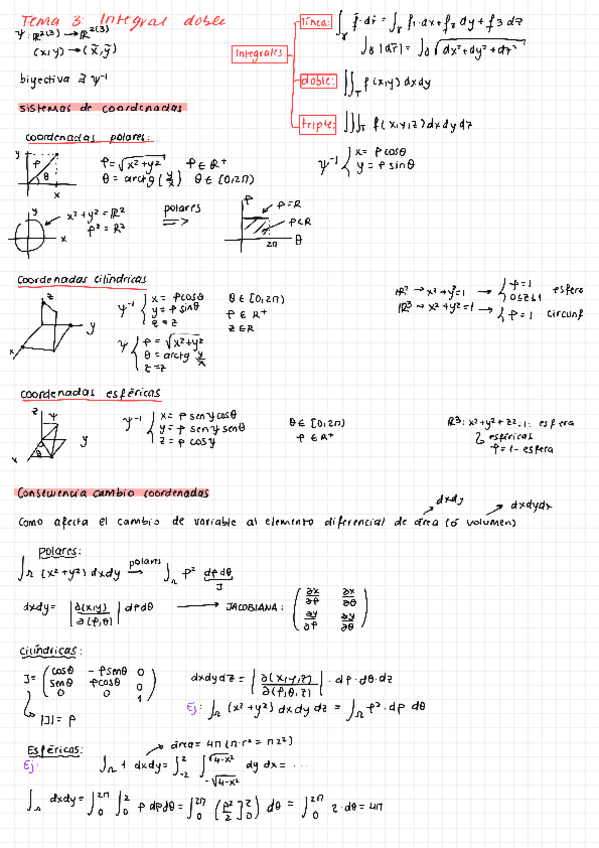 Tema 3: Integral doble
ψ: ℝ²⁽³⁾ → ℝ²⁽³⁾
(x,y) → (x̄,ȳ)
biyectiva ∃ ψ⁻¹
Integrales
línea: ∫_γ f̄·dr̄ = ∫_γ f₁·dx + f₂ dy + f₃ dz
∫_γ |dr̄| = ∫_γ √(dx²+dy²+dz²)
doble: ∬_T f(x,y) dx dy
triple: ∭_T f(x,y,z) dx dy dz
sistemas de coordenadas
coordenadas polares:
y ρ θ x
ρ = √(x²+y²) ρ ∈ ℝ⁺
θ = arctg (y/x) θ ∈ [0,2π)
ψ⁻¹ { x = ρ cosθ
y = ρ sinθ
y x
x²+y² = R²
ρ² = R²
polares =>
ρ ρ=R
ρ<R
2π θ
Coordenadas cilíndricas
z y x
ψ⁻¹ { x = ρ cosθ θ ∈ [0,2π)
y = ρ sinθ ρ ∈ ℝ⁺
z = z z ∈ ℝ
ψ { ρ = √(x²+y²)
θ = arctg y/x
z = z
ℝ² → x²+y²=1 → { ρ=1
0≤z≤1 esfera
ℝ³ → x²+y²=1 → { ρ=1 circunf
coordenadas esféricas
z ψ y x θ
ψ⁻¹ { x = ρ sen ψ cosθ θ ∈ [0,2π)
y = ρ sen ψ senθ ρ ∈ ℝ⁺
z = ρ cos ψ
ℝ³: x²+y²+z²=1: esfera
esféricas
ρ=1 - esfera
Consecuencia cambio coordenadas
dxdy dxdydz
Como afecta el cambio de variable al elemento diferencial de área (ó volumen)
Polares:
∫_Ω (x²+y²) dxdy →polares ∫_Ω ρ² dρdθ
J
dxdy = |∂(x,y)/∂(ρ,θ)| dρdθ → JACOBIANA: ( ∂x/∂ρ ∂x/∂θ
∂y/∂ρ ∂y/∂θ )
Cilíndricas:
J = ( cosθ -ρsenθ 0
senθ ρcosθ 0
0 0 1 )
|J| = ρ
dxdydz = |∂(x,y,z)/∂(ρ,θ,z)| · dρ·dθ·dz
Ej: ∫_Ω (x²+y²) dxdydz = ∫_Ω ρ²·dρ dθ
Esféricas:
área = 4π (π·r² = π2²)
Ej: ∫_Ω 1 dxdy = ∫_{-2}^{2} ∫_{-√(4-x²)}^{√(4-x²)} dy dx = ...
∫_Ω dxdy = ∫_0^{2π} ∫_0^2 ρ dρdθ = ∫_0^{2π} (ρ²/2]_0^2) dθ = ∫_0^{2π} 2·dθ = 4π